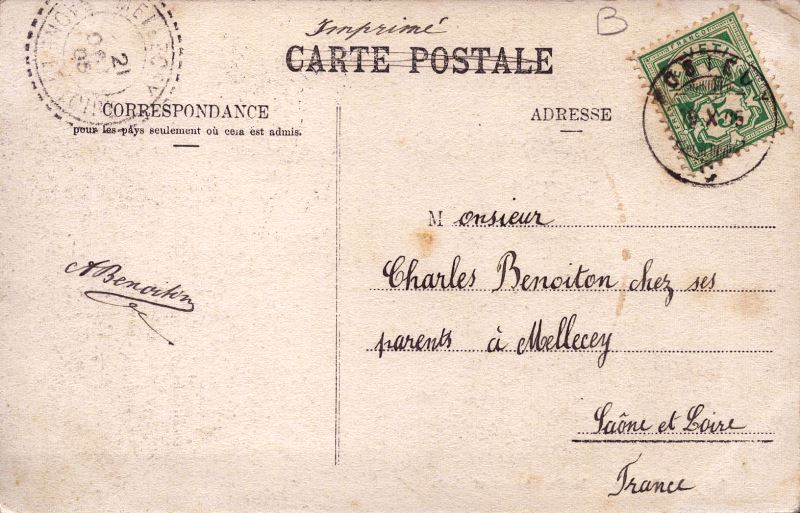 Imprimé
B
CARTE POSTALE
CORRESPONDANCE
pour les pays seulement où cela est admis.
ADRESSE
FRANCO
21
05
X
Monsieur
Charles Benoiton chez ses
parents à Mellecey
Saône et Loire
France
A Benoiton